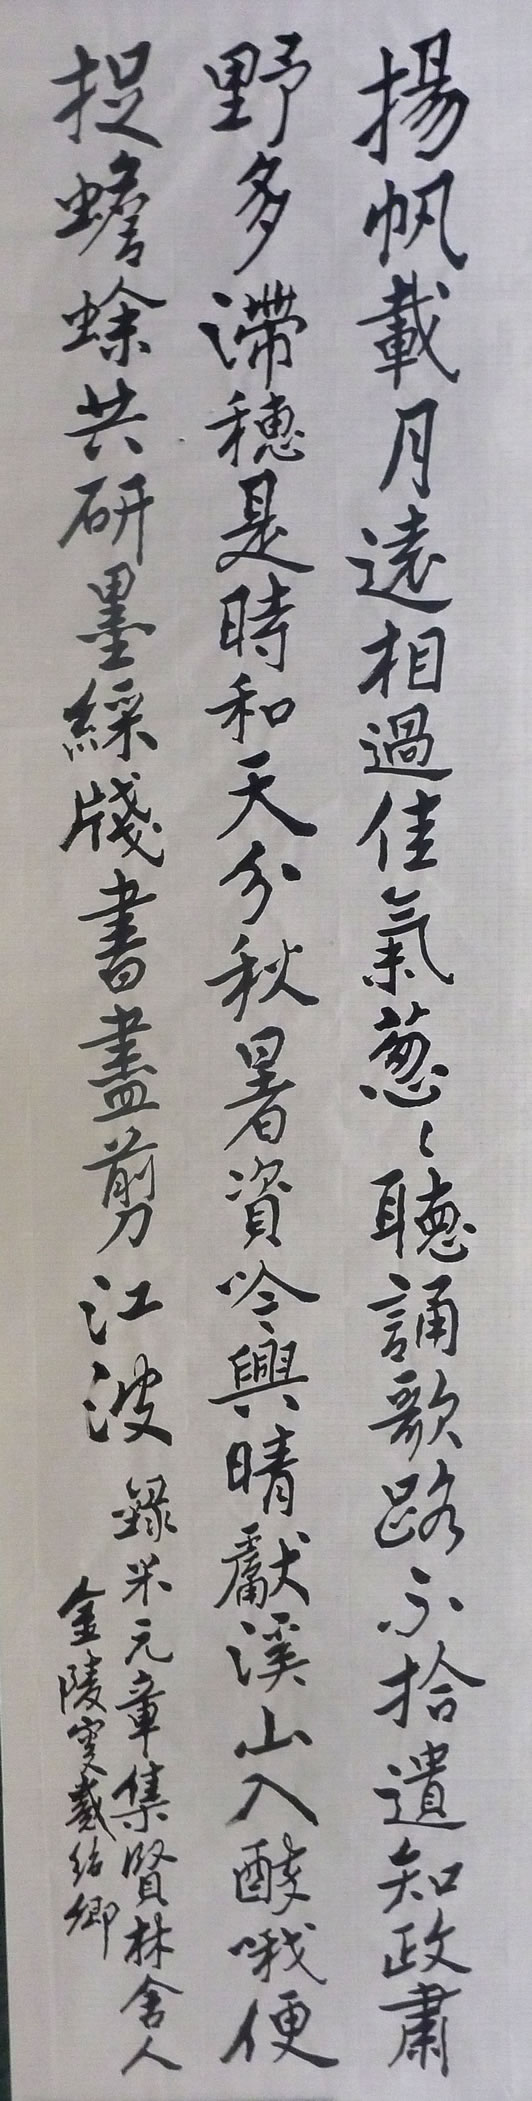 揚帆載月遠相過佳氣葱〻聽誦歌路不拾遺知政肅
野多滯穗是時和天分秋暑資吟興晴獻溪山入醉哦便
捉蟾蜍共研墨綵牋書盡剪江波
錄米元章集賢林舍人
金陵